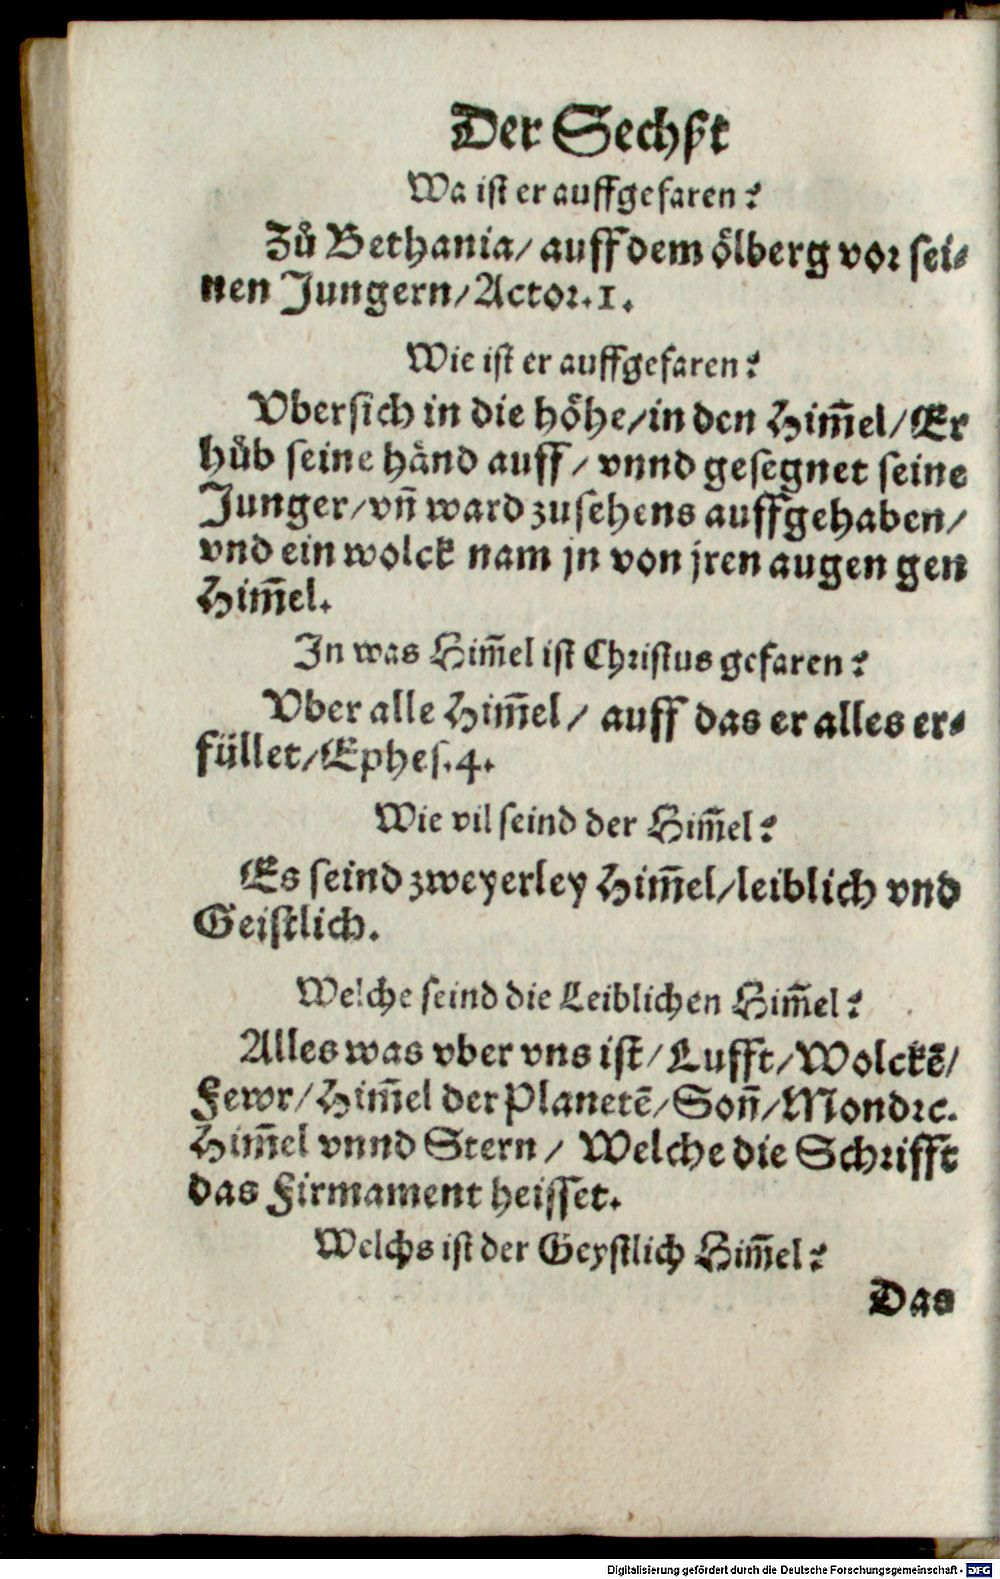 Der Sechßt
Wa ist er auffgefaren?
Zů Bethania/ auff dem ölberg vor sei-
nen Jungern/ Actor. 1.
Wie ist er auffgefaren?
Vbersich in die höhe/ in den Him̃el/ Er
hůb seine händ auff/ vnnd gesegnet seine
Junger/ vñ ward zusehens auffgehaben/
vnd ein wolck nam jn von jren augen gen
Him̃el.
In was Him̃el ist Christus gefaren?
Vber alle Him̃el/ auff das er alles er-
füllet/ Ephes. 4.
Wie vil seind der Him̃el?
Es seind zweyerley Him̃el/ leiblich vnd
Geistlich.
Welche seind die Leiblichen Him̃el?
Alles was vber vns ist/ Lufft/ Wolckẽ/
Fewr/ Him̃el der Planetẽ/ Soñ/ Mond ꝛc.
Him̃el vnnd Stern/ Welche die Schrifft
das Firmament heisset.
Welchs ist der Geystlich Him̃el?
Das
Digitalisierung gefördert durch die Deutsche Forschungsgemeinschaft - DFG